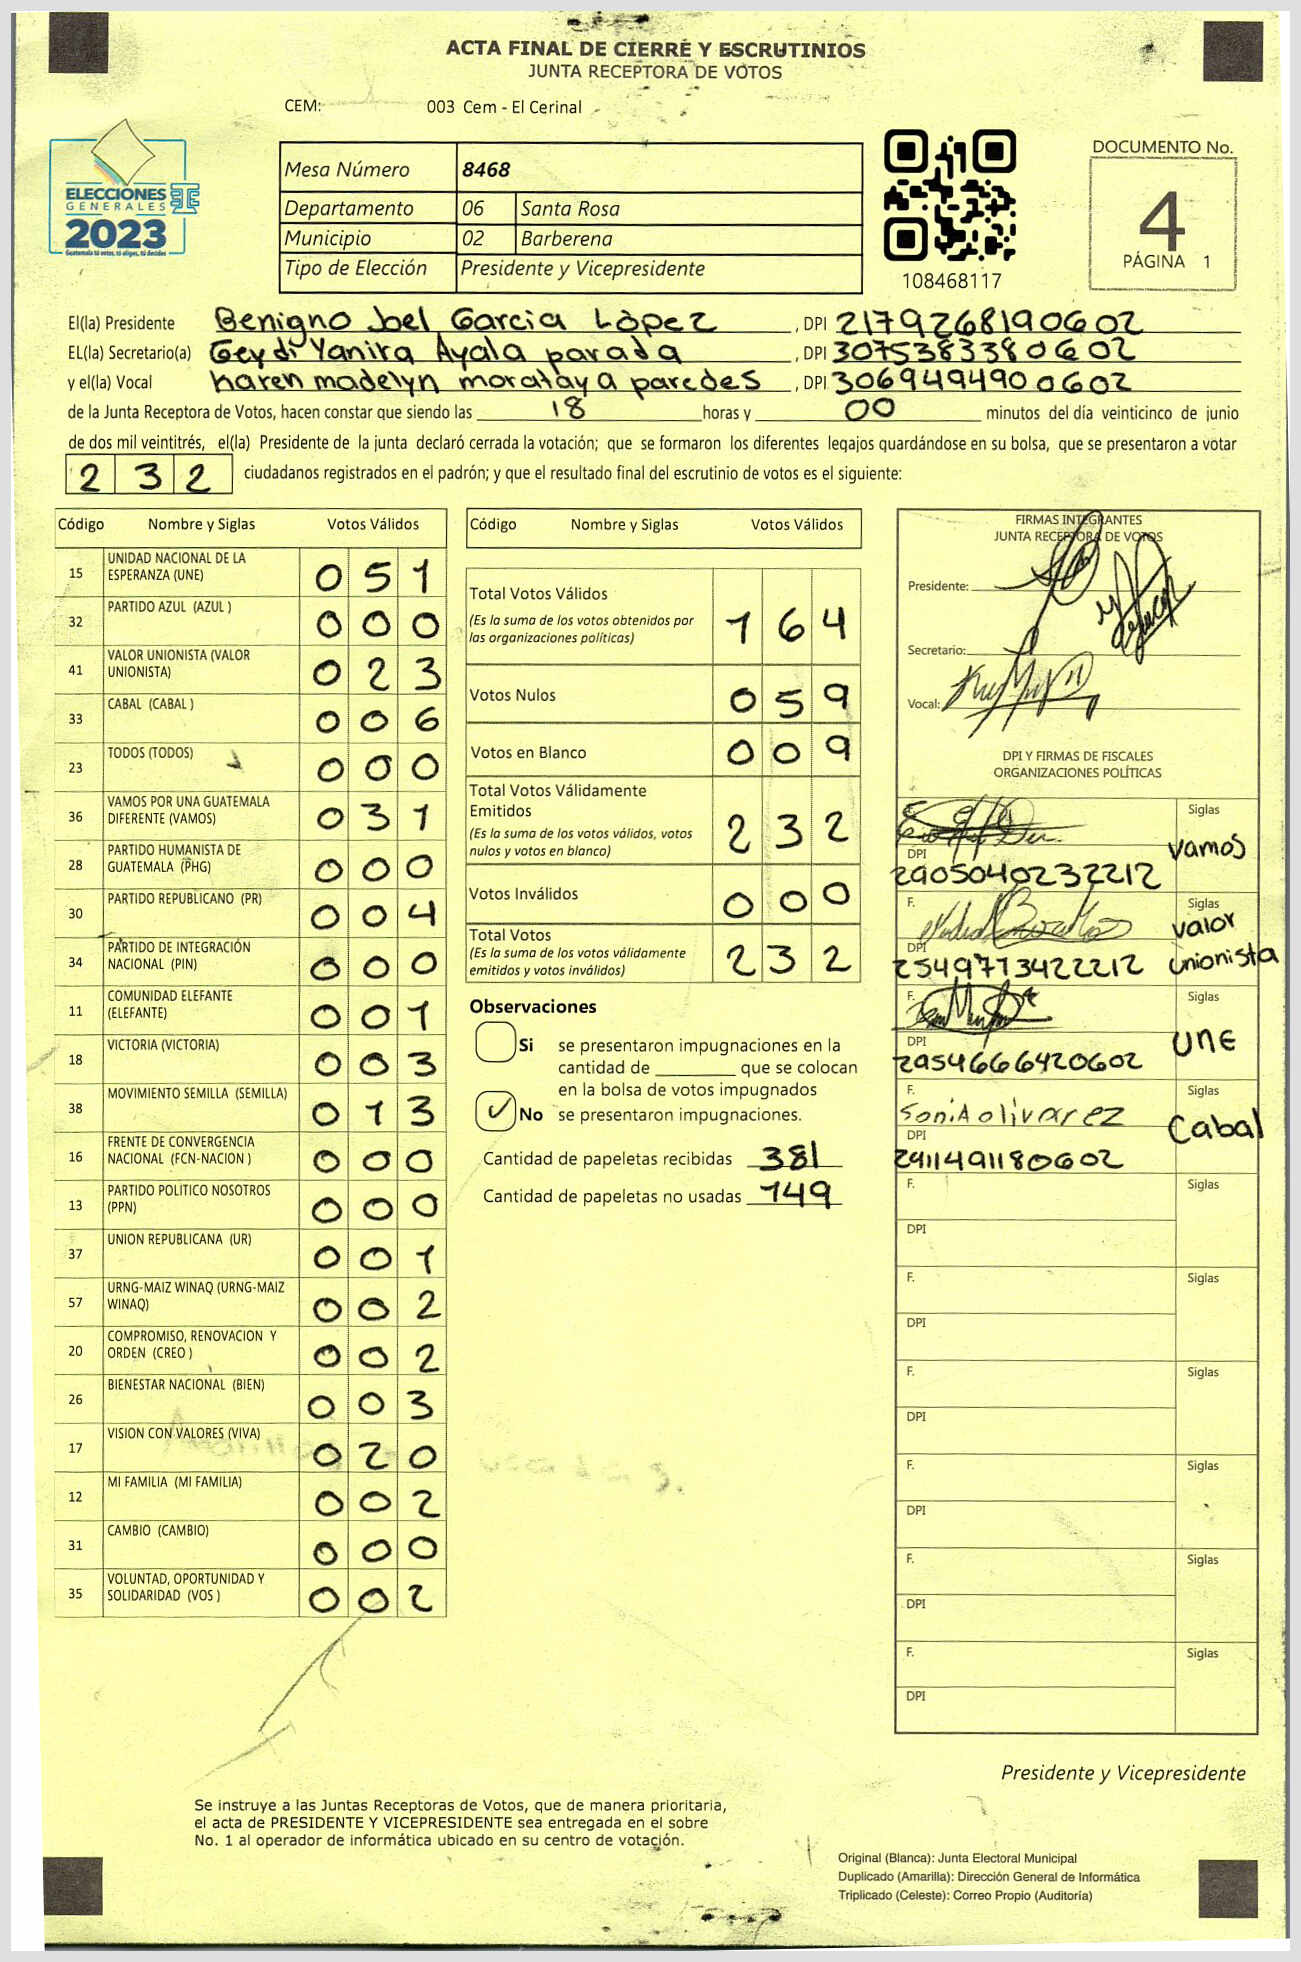 ACTA FINAL DE CIERRE Y ESCRUTINIOS
JUNTA RECEPTORA DE VOTOS
CEM: 003 Cem - El Cerinal
ELECCIONES
GENERALES
2023
Guatemala tú votas, tú eliges, tú decides
Mesa Número 8468
Departamento 06 Santa Rosa
Municipio 02 Barberena
Tipo de Elección Presidente y Vicepresidente
108468117
DOCUMENTO No.
4
PÁGINA 1
El(la) Presidente Benigno Joel Garcia López , DPI 2179268190602
EL(la) Secretario(a) Geydi Yanira Ayala parada , DPI 3075383380602
y el(la) Vocal Karen madelyn morataya paredes , DPI 3069494900602
de la Junta Receptora de Votos, hacen constar que siendo las 18 horas y 00 minutos del día veinticinco de junio
de dos mil veintitrés, el(la) Presidente de la junta declaró cerrada la votación; que se formaron los diferentes legajos guardándose en su bolsa, que se presentaron a votar
232 ciudadanos registrados en el padrón; y que el resultado final del escrutinio de votos es el siguiente:
Código Nombre y Siglas Votos Válidos
15 UNIDAD NACIONAL DE LA ESPERANZA (UNE) 051
32 PARTIDO AZUL (AZUL ) 000
41 VALOR UNIONISTA (VALOR UNIONISTA) 023
33 CABAL (CABAL ) 006
23 TODOS (TODOS) 000
36 VAMOS POR UNA GUATEMALA DIFERENTE (VAMOS) 031
28 PARTIDO HUMANISTA DE GUATEMALA (PHG) 000
30 PARTIDO REPUBLICANO (PR) 004
34 PARTIDO DE INTEGRACIÓN NACIONAL (PIN) 000
11 COMUNIDAD ELEFANTE (ELEFANTE) 001
18 VICTORIA (VICTORIA) 003
38 MOVIMIENTO SEMILLA (SEMILLA) 013
16 FRENTE DE CONVERGENCIA NACIONAL (FCN-NACION ) 000
13 PARTIDO POLITICO NOSOTROS (PPN) 000
37 UNION REPUBLICANA (UR) 001
57 URNG-MAIZ WINAQ (URNG-MAIZ WINAQ) 002
20 COMPROMISO, RENOVACION Y ORDEN (CREO ) 002
26 BIENESTAR NACIONAL (BIEN) 003
17 VISION CON VALORES (VIVA) 020
12 MI FAMILIA (MI FAMILIA) 002
31 CAMBIO (CAMBIO) 000
35 VOLUNTAD, OPORTUNIDAD Y SOLIDARIDAD (VOS ) 002
Código Nombre y Siglas Votos Válidos
Total Votos Válidos 164
(Es la suma de los votos obtenidos por
las organizaciones políticas)
Votos Nulos 059
Votos en Blanco 009
Total Votos Válidamente
Emitidos 232
(Es la suma de los votos válidos, votos
nulos y votos en blanco)
Votos Inválidos 000
Total Votos 232
(Es la suma de los votos válidamente
emitidos y votos inválidos)
Observaciones
Si se presentaron impugnaciones en la
cantidad de que se colocan
en la bolsa de votos impugnados
✓ No se presentaron impugnaciones.
Cantidad de papeletas recibidas 381
Cantidad de papeletas no usadas 149
FIRMAS INTEGRANTES
JUNTA RECEPTORA DE VOTOS
Presidente:
Secretario:
Vocal:
DPI Y FIRMAS DE FISCALES
ORGANIZACIONES POLÍTICAS
Siglas vamos
DPI 2905040232212
F. Siglas valor unionista
DPI 2549773422212
F. Siglas UNE
DPI 2954666420602
F. Sonia olivarez Siglas Cabal
DPI 2911491180602
F. Siglas
DPI
F. Siglas
DPI
F. Siglas
DPI
F. Siglas
DPI
F. Siglas
DPI
F. Siglas
DPI
Presidente y Vicepresidente
Se instruye a las Juntas Receptoras de Votos, que de manera prioritaria,
el acta de PRESIDENTE Y VICEPRESIDENTE sea entregada en el sobre
No. 1 al operador de informática ubicado en su centro de votación.
Original (Blanca): Junta Electoral Municipal
Duplicado (Amarilla): Dirección General de Informática
Triplicado (Celeste): Correo Propio (Auditoría)